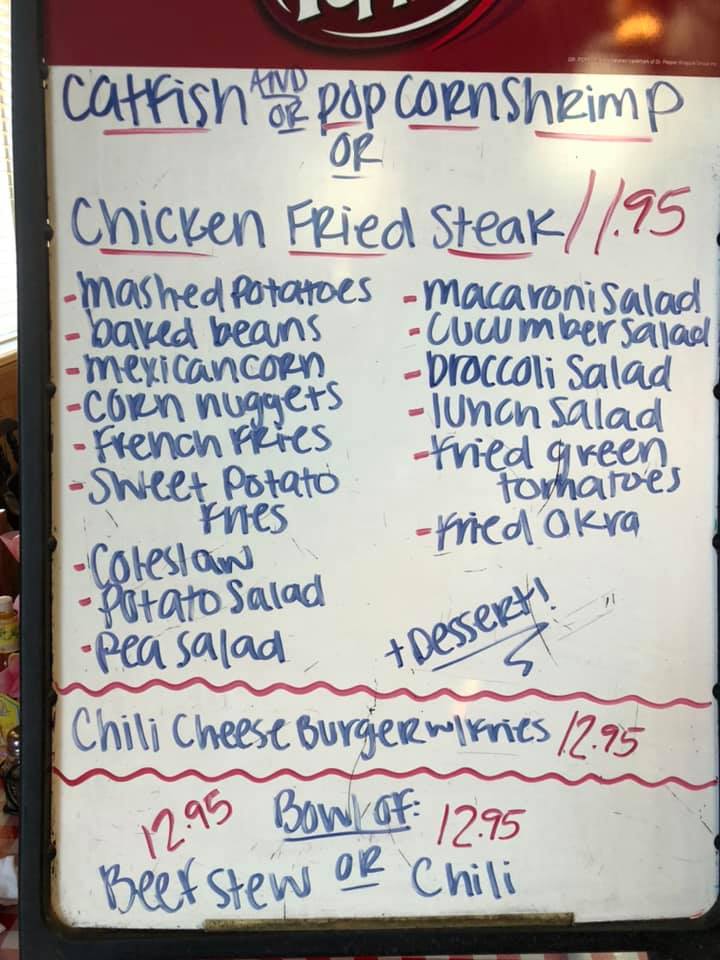 Catfish AND OR POPCORN SHRIMP
OR
Chicken Fried Steak 11.95
- mashed potatoes
- baked beans
- mexican corn
- corn nuggets
- French fries
- Sweet Potato
Fries
- Coleslaw
- Potato Salad
- Pea salad
- macaroni salad
- cucumber salad
- broccoli salad
- lunch salad
- fried green
tomatoes
- fried okra
+ Dessert!
Chili Cheese Burger w/ fries 12.95
12.95 Bowl of: 12.95
Beef stew OR Chili